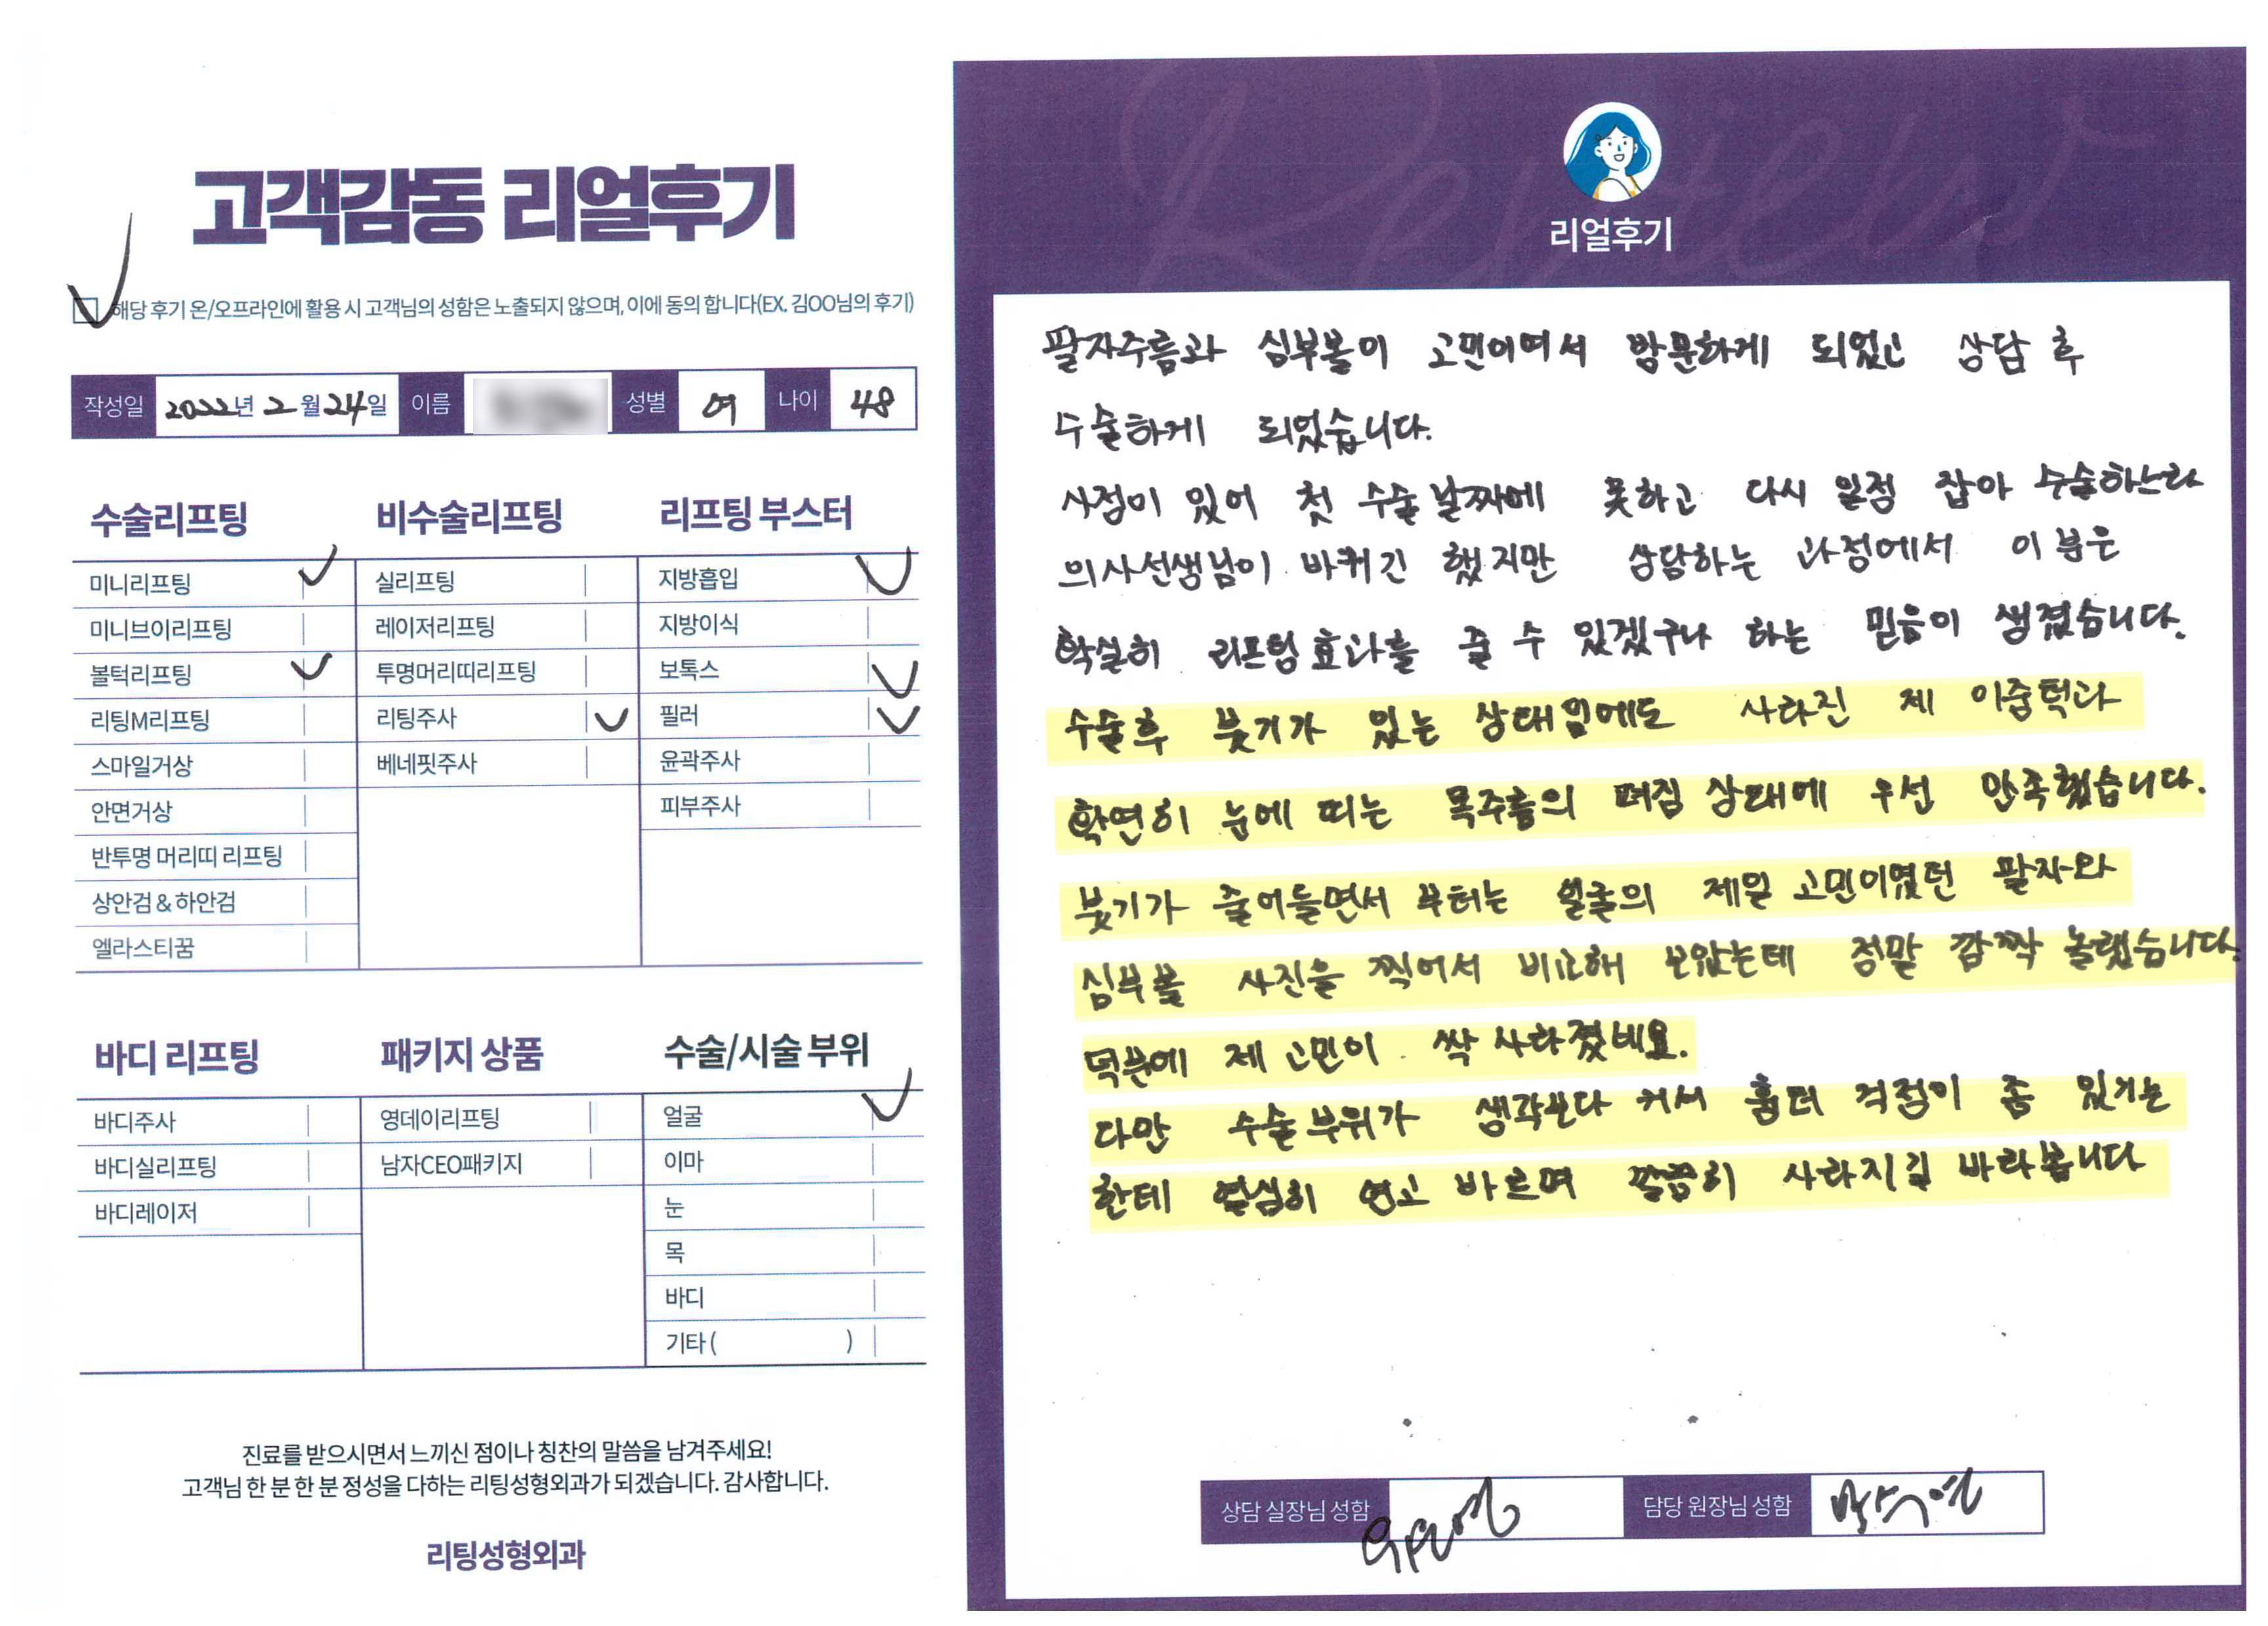 고객감동 리얼후기
해당 후기 온/오프라인에 활용 시 고객님의 성함은 노출되지 않으며, 이에 동의 합니다(EX. 김OO님의 후기)
작성일 2022년 2월 24일 이름 성별 여 나이 48
수술리프팅
미니리프팅
미니브이리프팅
볼턱리프팅
리팅M리프팅
스마일거상
안면거상
반투명 머리띠 리프팅
상안검 & 하안검
엘라스티꿈
비수술리프팅
실리프팅
레이저리프팅
투명머리띠리프팅
리팅주사
베네핏주사
리프팅 부스터
지방흡입
지방이식
보톡스
필러
윤곽주사
피부주사
바디 리프팅
바디주사
바디실리프팅
바디레이저
패키지 상품
영데이리프팅
남자CEO패키지
수술/시술 부위
얼굴
이마
눈
목
바디
기타 ( )
진료를 받으시면서 느끼신 점이나 칭찬의 말씀을 남겨주세요!
고객님 한 분 한 분 정성을 다하는 리팅성형외과가 되겠습니다. 감사합니다.
리팅성형외과
Review
리얼후기
팔자주름과 심부볼이 고민이여서 방문하게 되었고 상담 후
수술하게 되었습니다.
사정이 있어 첫 수술 날짜에 못하고 다시 일정 잡아 수술하느라
의사선생님이 바뀌긴 했지만 상담하는 과정에서 이 분은
확실히 리프팅 효과를 줄 수 있겠구나 하는 믿음이 생겼습니다.
수술후 붓기가 있는 상태임에도 사라진 제 이중턱과
확연히 눈에 띠는 목주름의 펴짐 상태에 우선 만족했습니다.
붓기가 줄어들면서 부터는 얼굴의 제일 고민이였던 팔자와
심부볼 사진을 찍어서 비교해 보았는데 정말 깜짝 놀랬습니다.
덕분에 제 고민이 싹 사라졌네요.
다만 수술 부위가 생각보다 커서 흉터 걱정이 좀 있기는
한데 열심히 연고 바르며 깔끔히 사라지길 바라봅니다
상담 실장님 성함
담당 원장님 성함